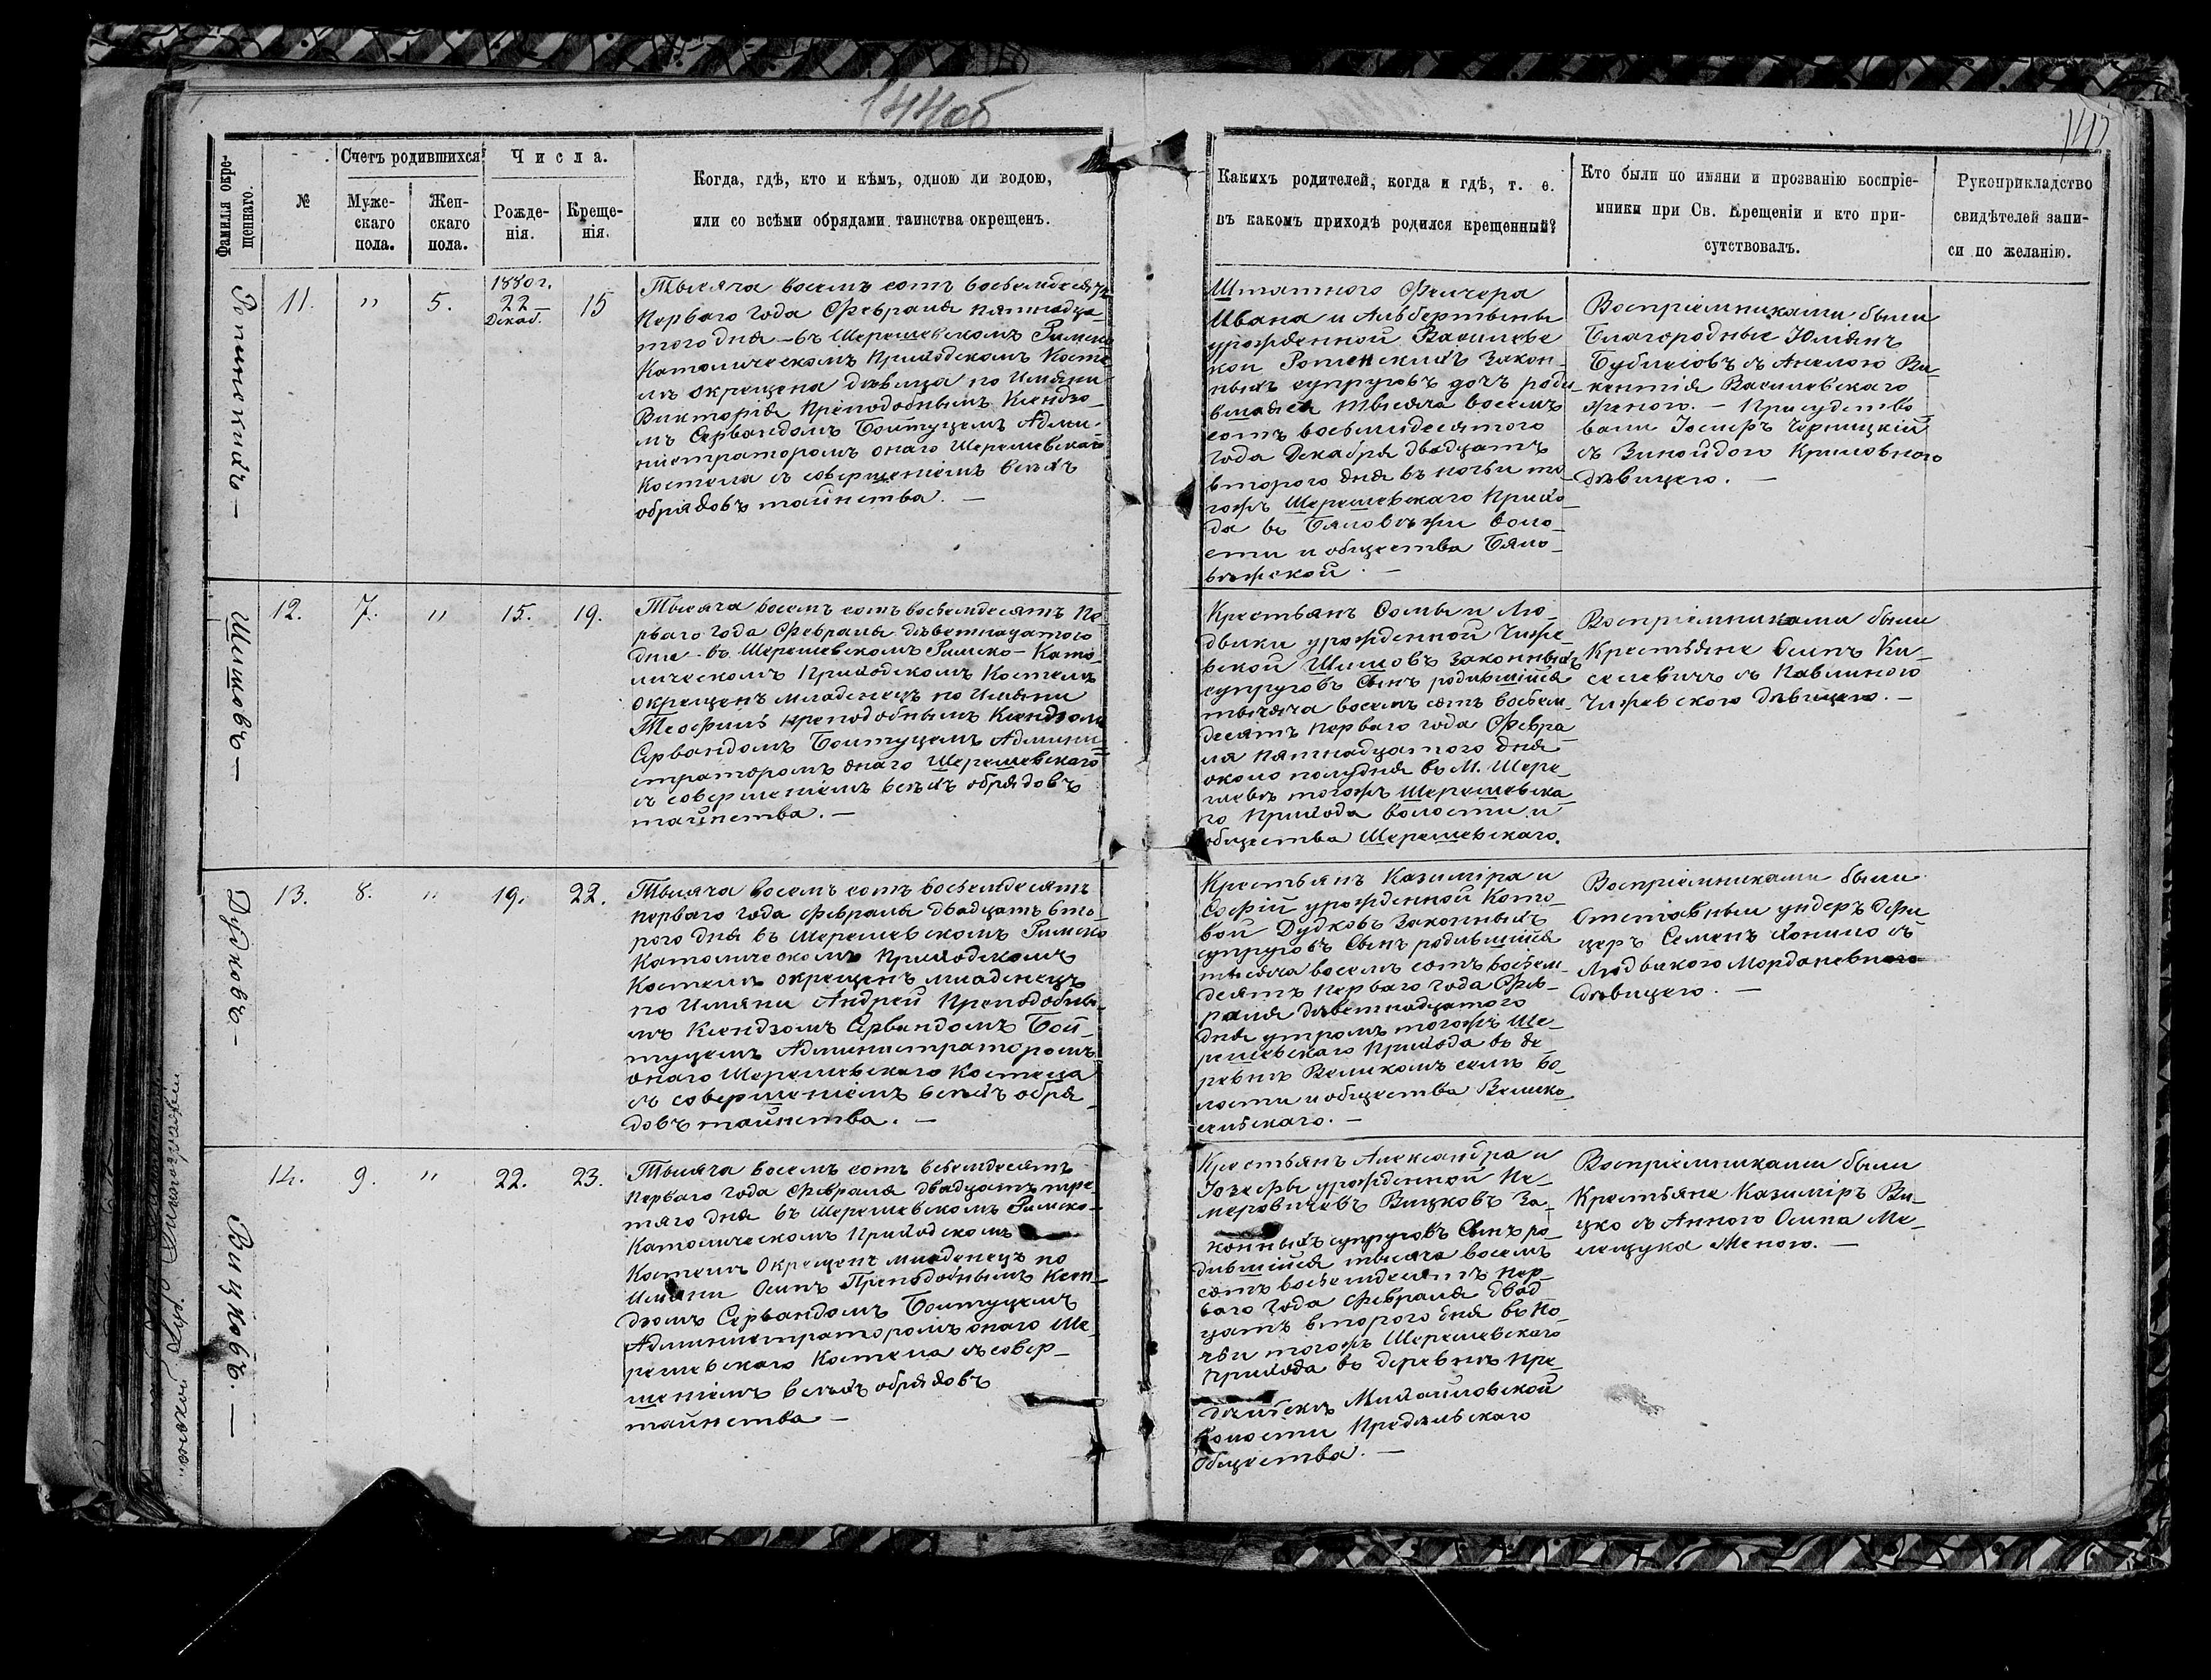 144об
Фамилія окре-
щеннаго.
№
Счетъ родившихся
Муже-
скаго
пола.
Жен-
скаго
пола.
Числа.
Рожде-
нія.
Креще-
нія.
Когда, гдѣ, кто и кѣмъ, одною ли водою,
или со всѣми обрядами таинства окрещенъ.
Какихъ родителей, когда и гдѣ, т. е.
въ какомъ приходѣ родился крещенный?
Кто были по имяни и прозванію воспріе-
мники при Св. Крещеніи и кто при-
сутствовалъ.
Рукоприкладство
свидѣтелей запи-
си по желанію.
11.
"
5.
1880 г.
22 —
Декаб.
15
Тысяча восемъ сотъ восьемдесятъ
Перваго года Февраля пятнадца-
того дня — въ Шерешевскомъ Римско
Католическомъ Приходскомъ Косте
лѣ окрещена дѣвица по Имяни
Викторія Преподобнымъ Ксендзо-
мъ Сервандомъ Бойтуцемъ Адми-
нистраторомъ онаго Шерешевскаго
Костела съ совершеніемъ всѣхъ
обрядовъ таинства. —
Штатного Фельчера
Ивана и Альбертыны
урожденной Василеве
кои законн-
ныхъ супруговъ дочъ роди-
вшаяся тысяча восемъ
сотъ восьмидесятого
года Декабря двадцатъ
второго дня въ ночьи то
гожъ Шерешевскаго Прихо-
да въ Бяловѣжи воло-
сти и общества Бяло-
вѣжской. —
Воспріемниками были
Благородные Юліянъ
съ Анелею Ви-
кентія Василевскаго
женою. — Присудство
вали Іосифъ Черницкій
съ Зинойдою
дѣвицею. —
Шишовъ —
12.
7.
"
15.
19.
Тысяча восемъ сотъ восьемдесятъ Пе
рваго года Февраля дѣветнадцатого
дня — въ Шерешевскомъ Римско-Като-
лическомъ Приходскомъ Костелѣ
окрещенъ младенецъ по Имяни
Теофилъ преподобнымъ Ксендзомъ
Сервандомъ Бойтуцемъ Админи-
страторомъ онаго Шерешевскаго
съ совершеніемъ всѣхъ обрядовъ
таинства. —
Крестьянъ Фомы и Лю-
двики урожденной Чиже-
вской Шишовъ законныхъ
супруговъ Сынъ родившійся
тысяча восемъ сотъ восьем-
десятъ перваго года Февра
ля пятнадцатого дня
около полудня въ М. Шере-
шевѣ тогожъ Шерешевска-
го Прихода волости и
общества Шерешевскаго.
Воспріемниками были
Крестьяне Осипъ Ки-
селевичъ съ Павлиною
Чижевскою дѣвицею. —
Дудковъ —
13.
8.
"
19.
22.
Тысяча восемъ сотъ восьемдесятъ
перваго года Февраля двадцатъ вто-
рого дня въ Шерешевскомъ Римско
Католическомъ Приходскомъ
Костелѣ окрещенъ младенецъ
по Имяни Андрей Преподобны-
мъ Ксендзомъ Сервандомъ Бой-
туцемъ Администраторомъ
онаго Шерешевскаго Костела
съ совершеніемъ всѣхъ обря-
довъ таинства. —
Крестьянъ Казиміра и
Софій урожденной Кото-
вой Дудковъ Законныхъ
супруговъ Сынъ родившійся
тысяча восемъ сотъ восьем-
десятъ перваго года Фев-
раля дѣветнадцатого
дня утромъ тогожъ Ше-
решевскаго Прихода въ де
ревнѣ Великомъ селѣ во-
лости и общества Велико-
сельскаго. —
Воспріемниками были
Отставный ундеръ Офи
церъ Семенъ съ
Людвикою
дѣвицею. —
Вицковъ. —
14.
9.
"
22.
23.
Тысяча восемъ сотъ восьемдесятъ
Перваго года Февраля двадцатъ тре-
тяго дня въ Шерешевскомъ Римско-
Католическомъ Приходскомъ
Костелѣ Окрещенъ младенецъ по
Имяни Осипъ Преподобнымъ Ксен-
дзомъ Сервандомъ Бойтуцемъ
Администраторомъ онаго Ше-
решевскаго Костела съ совер-
шеніемъ всѣхъ обрядовъ
таинства —
Крестьянъ Александра и
Іозефы урожденной Не-
меровичевъ Вицковъ За-
конныхъ супруговъ Сынъ ро-
дившійся тысяча восемъ
сотъ восьемдесятъ пер-
ваго года Февраля двад
цатъ второго дня въ но-
чьи тогожъ Шерешевскаго
Прихода въ деревнѣ Пре-
Михайловской
волости Предѣльскаго
Общества. —
Воспріемниками были
Крестьяне Казиміръ Ви-
цко съ Анною Осипа Ме-
лещука женою. —